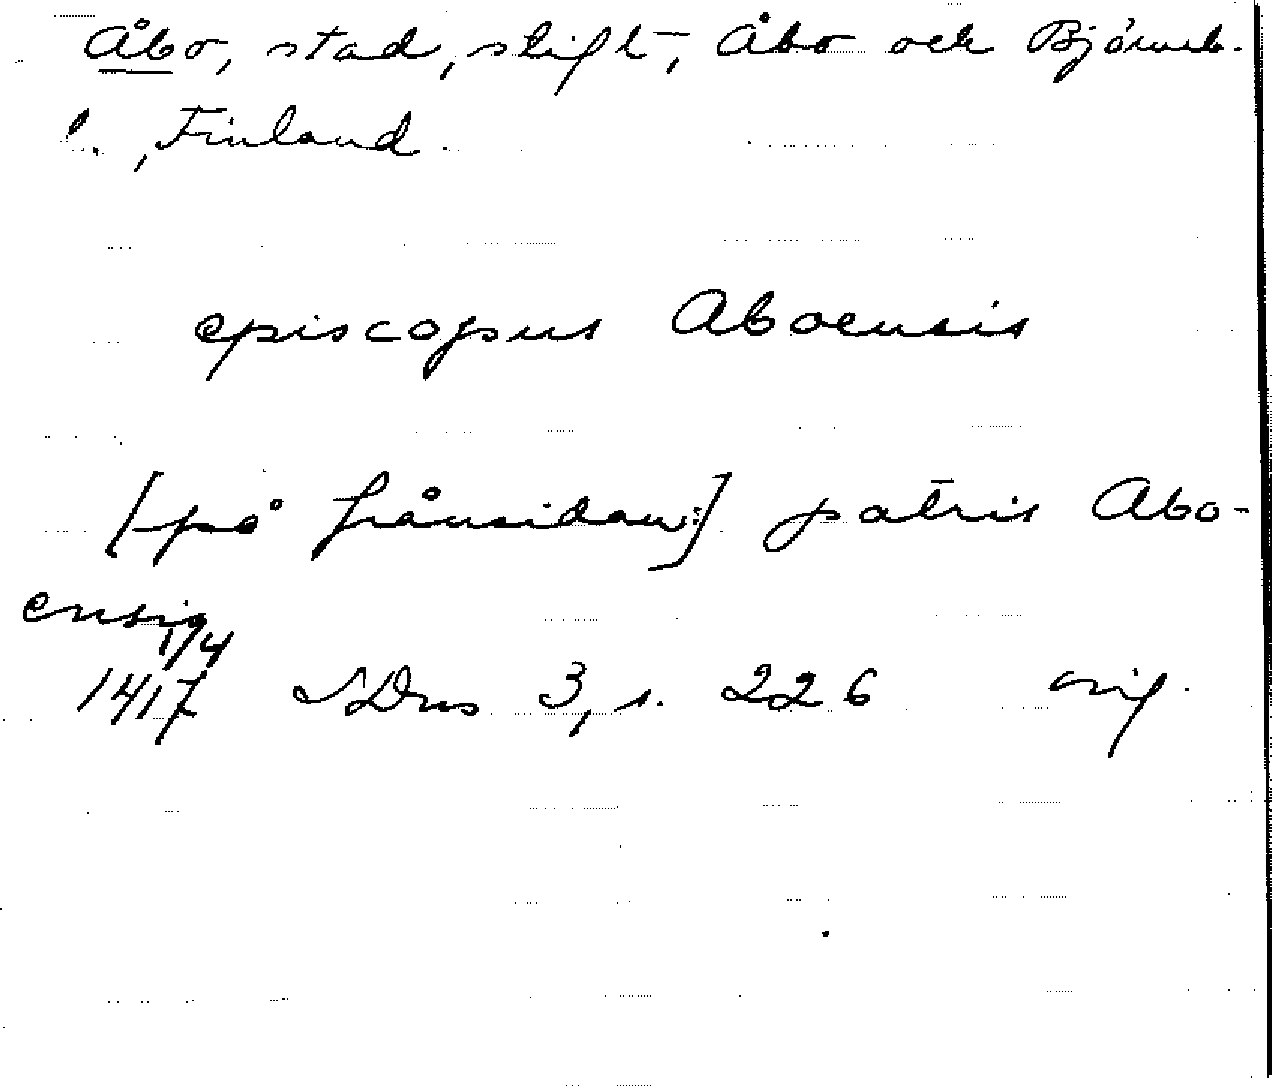 Åbo, stad, stift, Åbo och Björneb.
l., Finland.
episcopus Aboensis
[på frånsidan:] patris Abo-
ensis
1/4
1417 SDns 3, s. 226 orig.